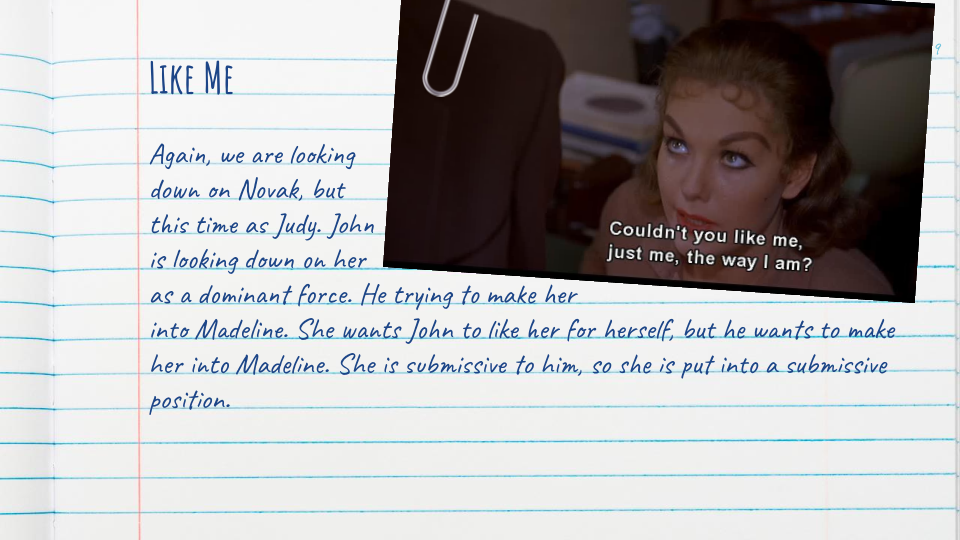 9
Like Me
Again, we are looking
down on Novak, but
this time as Judy. John
is looking down on her
as a dominant force. He trying to make her
into Madeline. She wants John to like her for herself, but he wants to make
her into Madeline. She is submissive to him, so she is put into a submissive
position.
Couldn't you like me,
just me, the way I am?